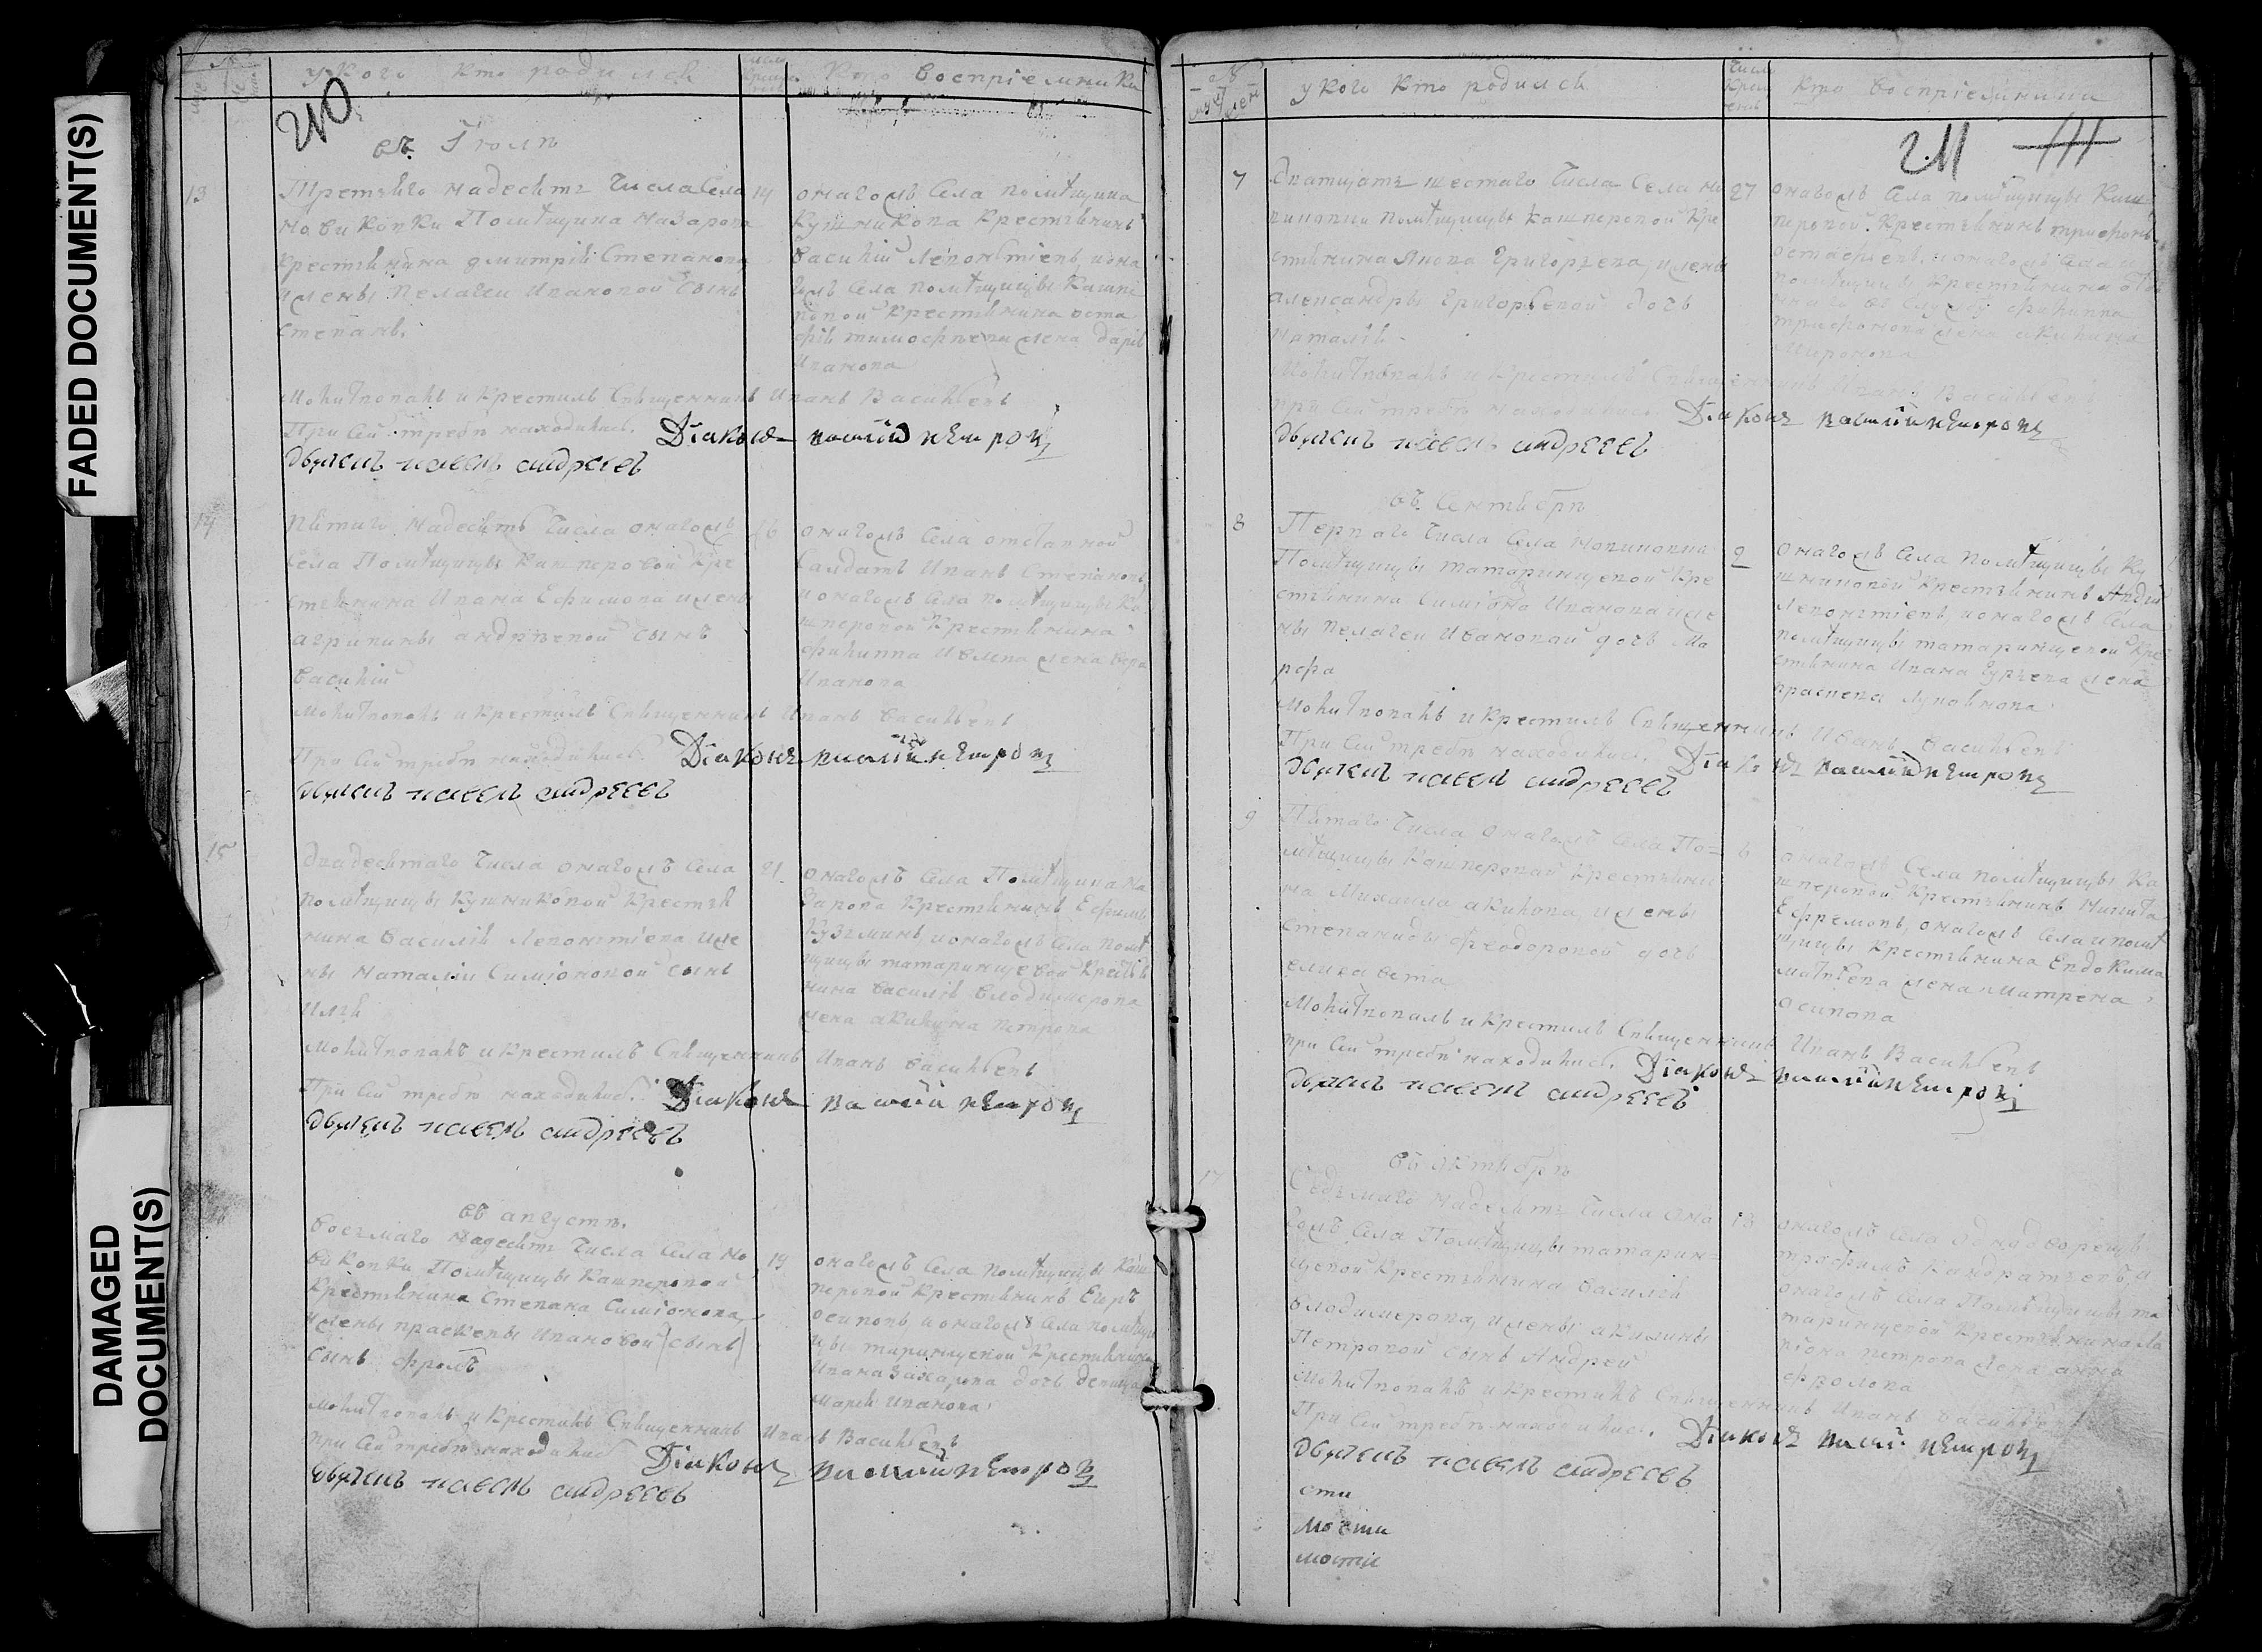 FADED DOCUMENT(S)
DAMAGED
DOCUMENT(S)
у кого кто родился
кто воспріемники
210
въ Іюлѣ
13
Третьяго надесять числа села
14
новиковки Помѣщика Назарова
крестьянина дмитрія Степанова
и жены Пелагеи Ивановой сынъ
степанъ.
онагожъ села помѣщика
кушникова крестьянинъ
василій Леонтіевъ, и она
гожъ села помѣщицы Кашпе
ровой крестьянина оста
фія тимофѣева жена дарія
Иванова
Молитвовалъ и крестилъ Священникъ Иванъ Васильевъ
При сей требѣ находились. Діаконъ василій петровъ
дьячекъ павелъ андреевъ
14
Пятаго надесять числа онагожъ
16
села Помѣщицы Кашперовой кре
стьянина Ивана Ефимова и жены
агрипины андрѣевой сынъ
василій
онагожъ села отставной
салдатъ Иванъ Степановъ
и онагожъ села помѣщицы Ка
шперовой крестьянина
филиппа жена вера
Иванова
Молитвовалъ и крестилъ Священникъ Иванъ Васильевъ
При сей требѣ находились. Діаконъ василій петровъ
дьячекъ павелъ андреевъ
15
двадесятаго числа онагожъ села
21
помѣщицы Кушниковой крестья
нина василія Леонтіева и же
ны наталіи Симіоновой сынъ
илья
онагожъ села Помѣщика На
зарова крестьянинъ Ефимъ
Кузьминъ, и онагожъ села помѣ
щицы татаринцевой крестья
нина василія владимерова
жена акилина петрова
Молитвовалъ и крестилъ Священникъ Иванъ Васильевъ
При сей требѣ находились. Діаконъ василій петровъ
дьячекъ павелъ андреевъ
въ августѣ.
восьмаго надесять числа села но
19
виковки Помѣщицы Кашперовой
крестьянина Степана Симіонова,
и жены прасковьи Ивановой (сынъ)
сынъ фролъ
онагожъ села помѣщицы Каш
перовой крестьянинъ Егоръ
осиповъ, и онагожъ села помѣщи
цы таринцевой крестьянина
Ивана Захарова дочь девица
Марья иванова
Молитвовалъ и крестилъ Священникъ Иванъ Васильевъ
При сей требѣ находились Діаконъ василій петровъ
дьячекъ павелъ андреевъ
у кого кто родился
кто воспріемники
211
7
дватцать шестаго числа села но
27
виковки помѣщицы кашперовой кре
стьянина Григорьева, и жены
александры григорьевой дочь
наталія.
онагожъ села помѣщицы Каш
перовой крестьянинъ трифонъ
остафьевъ, и онагожъ села
помѣщицы крестьянина
филиппа
трифонова жена акилина
Миронова
Молитвовалъ и крестилъ Священникъ Иванъ Васильевъ
при сей требѣ находились. Діаконъ василій петровъ
дьячекъ павелъ андреевъ
въ Сентябрѣ
8
Перваго числа села новиковки
2
Помѣщицы татаринцевой кре
стьянина Симіона Иванова и же
ны пелагеи Ивановой дочь Ма
рфа
онагожъ села помѣщицы Ку
шниковой крестьянинъ Андрей
Леонтіевъ, и онагожъ села
помѣщицы татаринцевой кре
стьянина Ивана жена
прасковья
Молитвовалъ и крестилъ Священникъ Иванъ Васильевъ
При сей требѣ находились, Діаконъ василій петровъ
дьячекъ павелъ андреевъ
9
Пятаго числа онагожъ села По-
6
мѣщицы Кашперовой крестьяни
на Михаила акилова, и жены
степаниды феодоровой дочь
елисавета
онагожъ села помѣщицы Ка
шперовой крестьянинъ Никита
Ефремовъ, онагожъ села и помѣ
щицы крестьянина Евдокима
матвѣева жена матрена
осипова
Молитвовалъ и крестилъ Священникъ Иванъ Васильевъ
при сей требѣ находились. Діаконъ василій петровъ
дьячекъ павелъ андреевъ
въ октябрѣ
17
Седьмаго надесять числа она
18
гожъ села Помѣщицы татарин-
цевой крестьянина василія
владимерова, и жены акилины
Петровой сынъ Андрей
онагожъ села однодворецъ
трофимъ и
онагожъ села Помѣщицы та
таринцевой крестьянина
петрова жена анна
фролова
Молитвовалъ и крестилъ Священникъ Иванъ Васильевъ
При сей требѣ находились. Діаконъ василій петровъ
дьячекъ павелъ андреевъ
сти
мости
мости